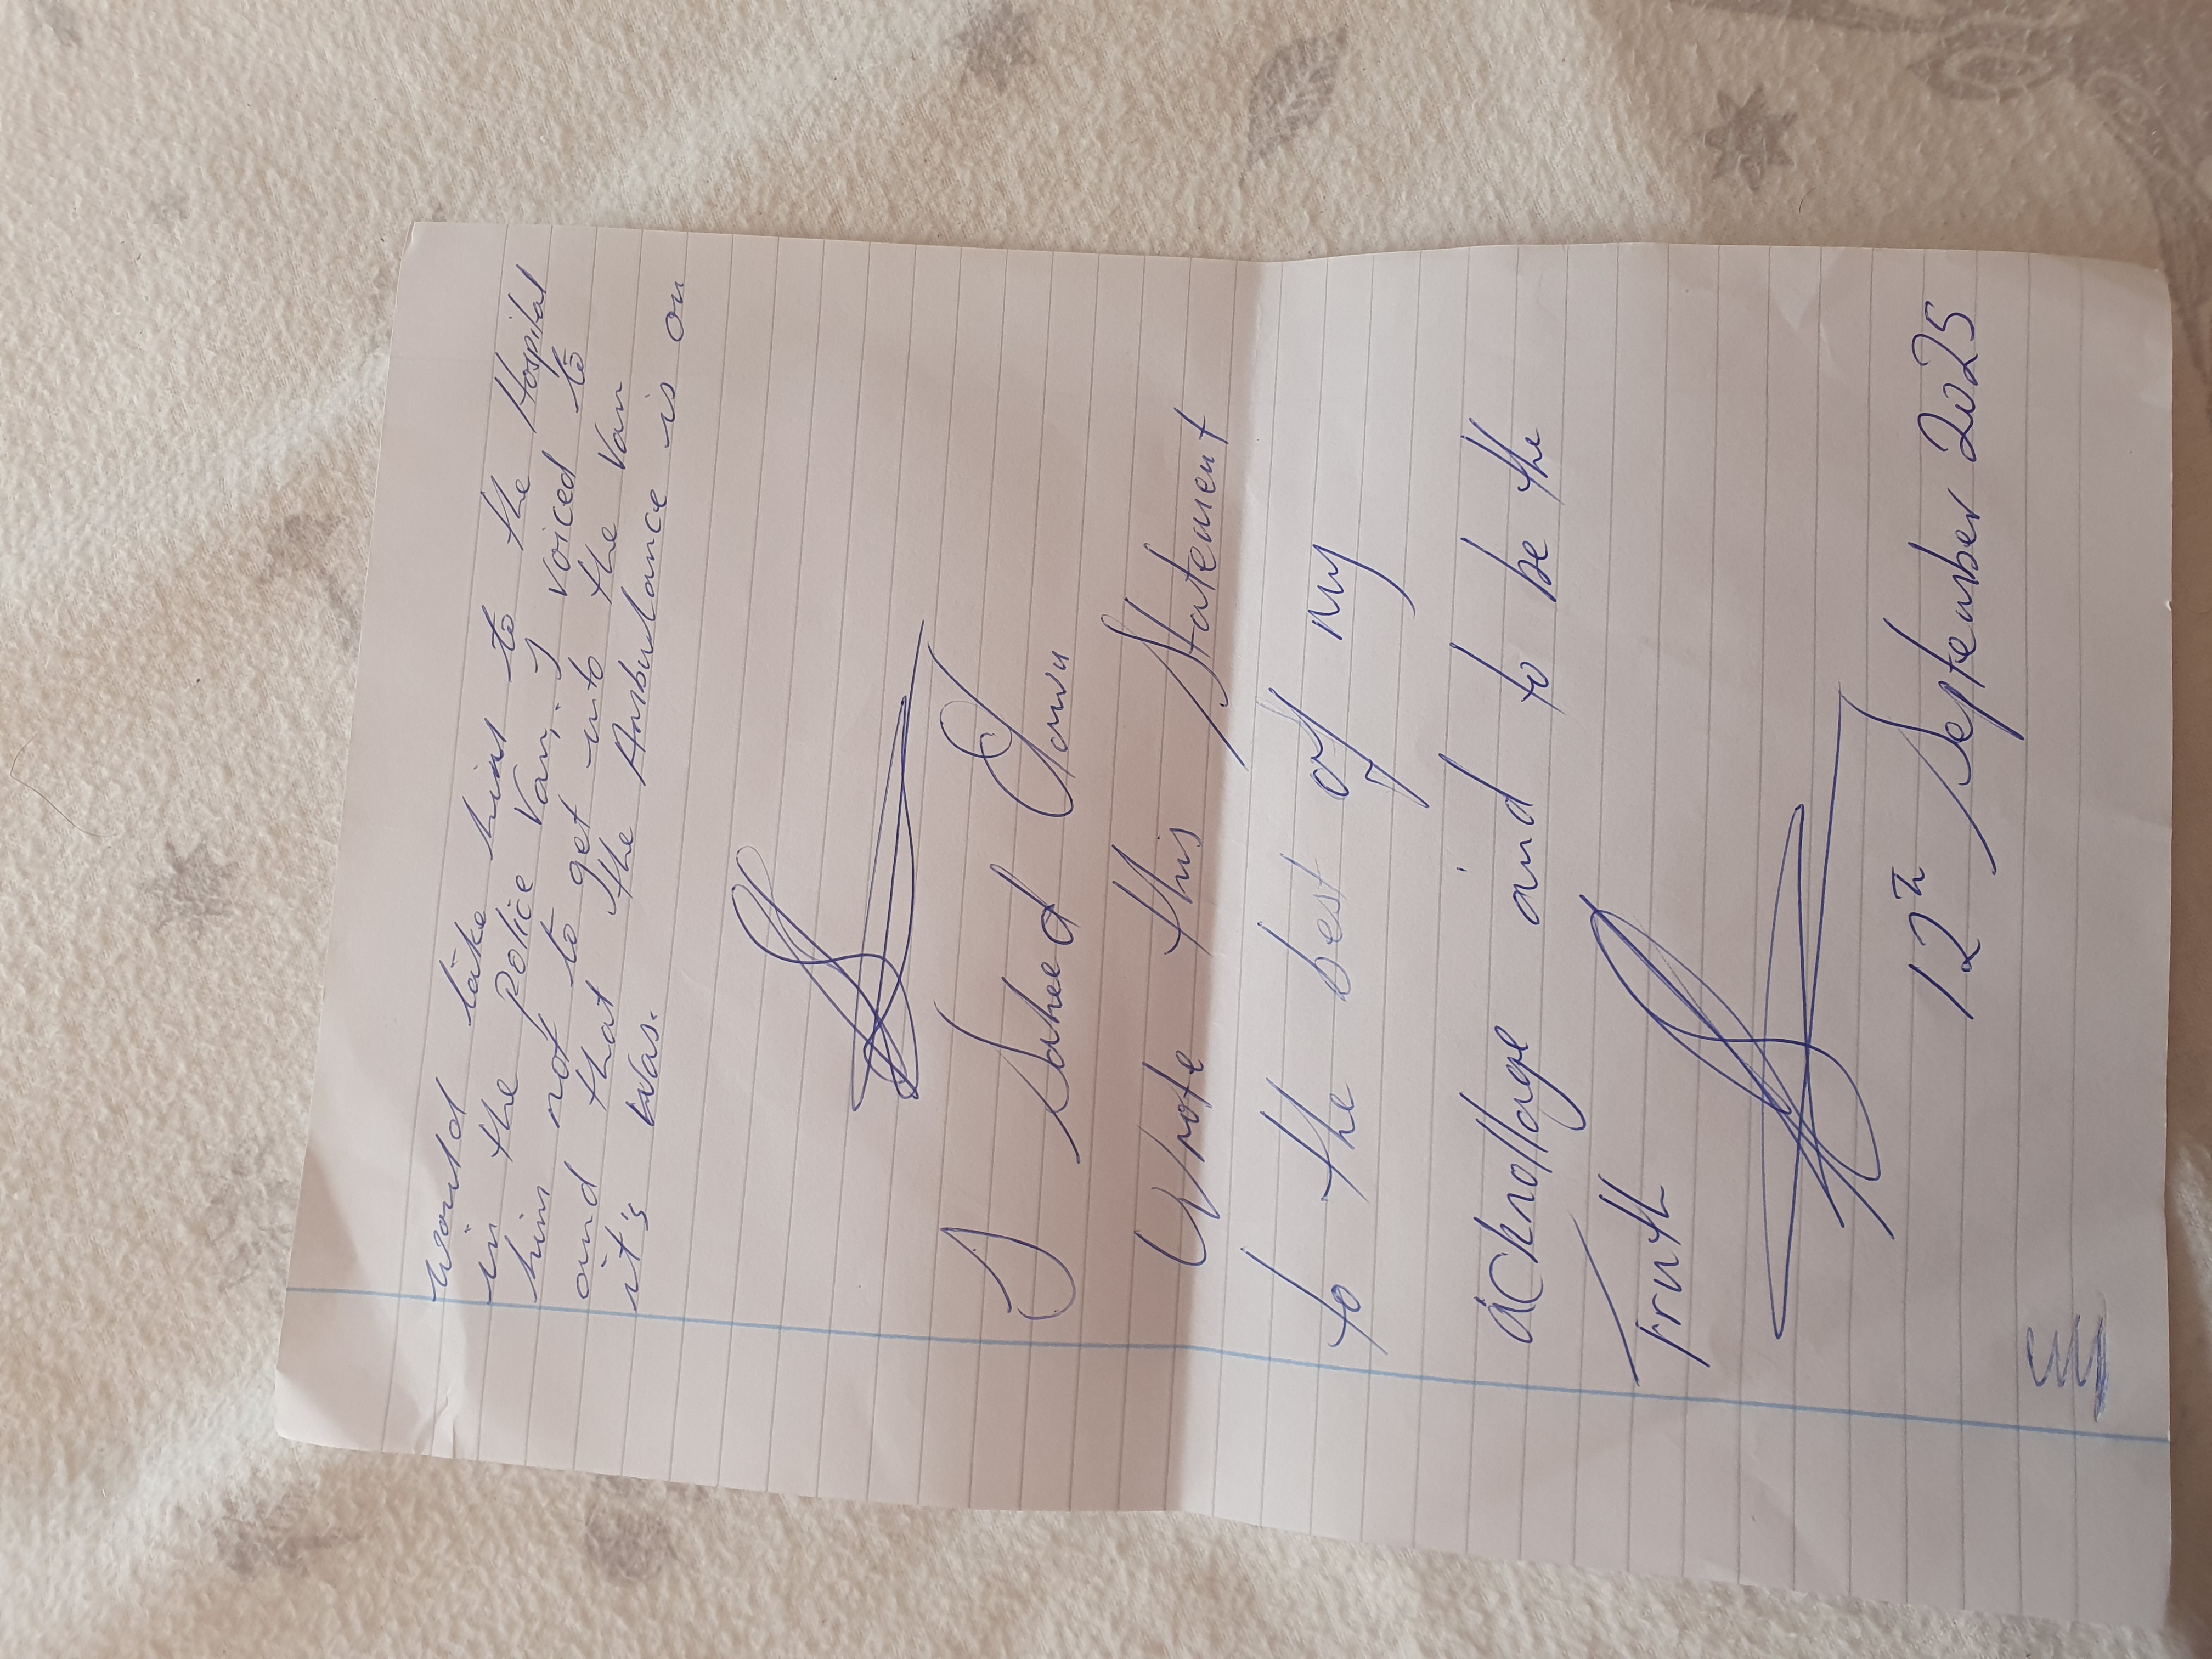 would take him to the Hospital
in the Police Van, I voiced to
him not to get into the Van
and that the Ambulance is on
it's was.
I Saheed
Wrote this Statement
to the best of my
acknollage and to be the
Truth
12th September 2025